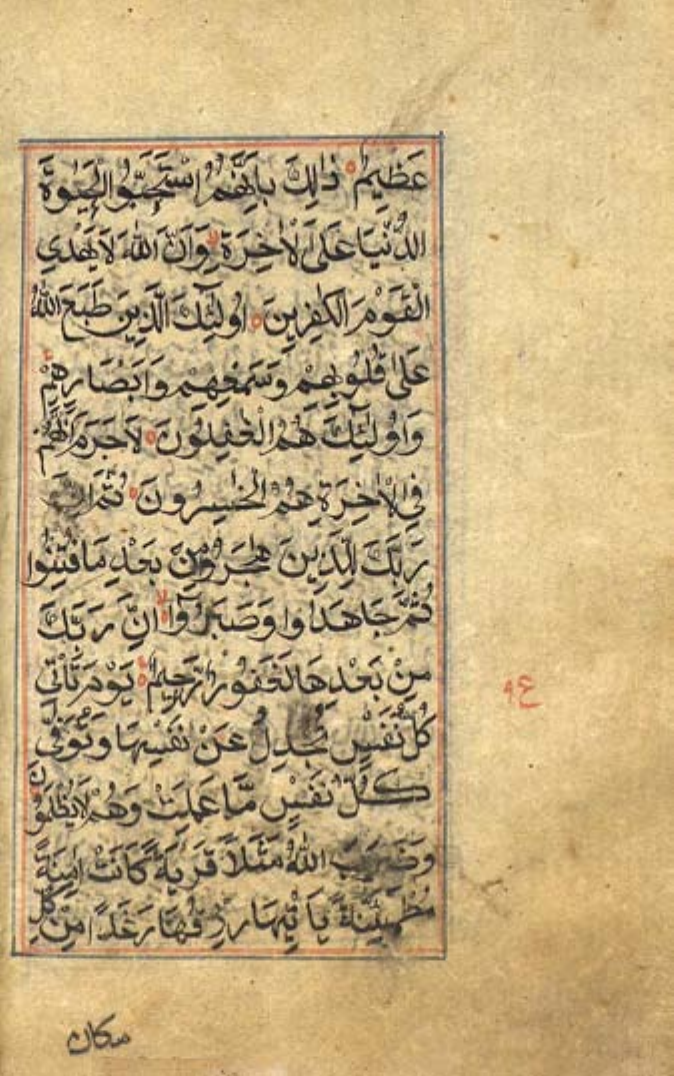 عَظِيمٌ ذٰلِكَ بِاَنَّهُمُ اسْتَحَبُّوا الْحَيٰوةَ
الدُّنْيَا عَلَى الْاٰخِرَةِ وَاَنَّ اللّٰهَ لَا يَهْدِي
الْقَوْمَ الْكٰفِرِينَ اُولٰئِكَ الَّذِينَ طَبَعَ اللّٰهُ
عَلٰى قُلُوبِهِمْ وَسَمْعِهِمْ وَاَبْصَارِهِمْ
وَاُولٰئِكَ هُمُ الْغٰفِلُونَ لَا جَرَمَ اَنَّهُمْ
فِي الْاٰخِرَةِ هُمُ الْخٰسِرُونَ ثُمَّ اِنَّ
رَبَّكَ لِلَّذِينَ هَاجَرُوا مِنْ بَعْدِ مَا فُتِنُوا
ثُمَّ جَاهَدُوا وَصَبَرُوا اِنَّ رَبَّكَ
مِنْ بَعْدِهَا لَغَفُورٌ رَحِيمٌ يَوْمَ تَأْتِي
كُلُّ نَفْسٍ تُجَادِلُ عَنْ نَفْسِهَا وَتُوَفّٰى
كُلُّ نَفْسٍ مَا عَمِلَتْ وَهُمْ لَا يُظْلَمُونَ
وَضَرَبَ اللّٰهُ مَثَلًا قَرْيَةً كَانَتْ اٰمِنَةً
مُطْمَئِنَّةً يَأْتِيهَا رِزْقُهَا رَغَدًا مِنْ كُلِّ
مكان